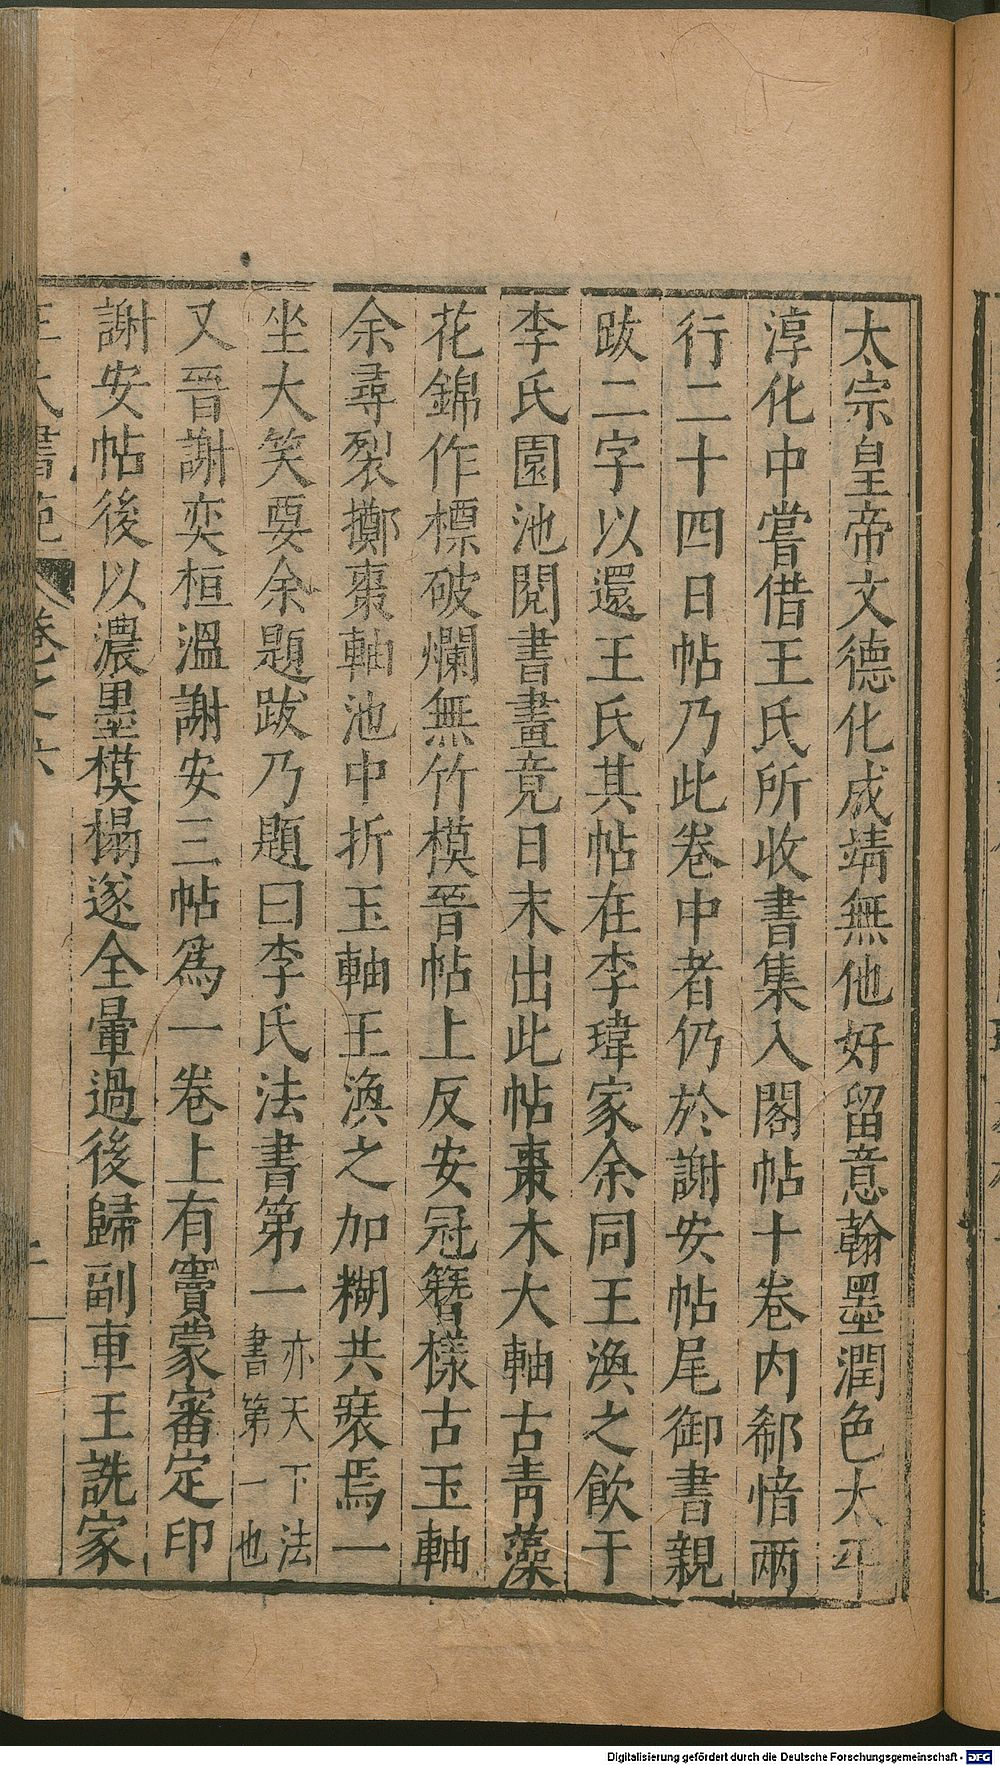 太宗皇帝文德化成靖無他好留意翰墨潤色太平
淳化中嘗借王氏所收書集入閣帖十卷内郗愔兩
行二十四日帖乃此卷中者仍於謝安帖尾御書親
跋二字以還王氏其帖在李瑋家余同王渙之飲于
李氏園池閱書畫竟日末出此帖棗木大軸古青藻
花錦作標破爛無竹模晉帖上反安冠簪樣古玉軸
余尋裂擲棗軸池中折玉軸王渙之加糊共裝焉一
坐大笑要余題跋乃題曰李氏法書第一
亦天下法
書第一也
又晉謝奕桓溫謝安三帖爲一卷上有竇蒙審定印
謝安帖後以濃墨模搨遂全暈過後歸副車王詵家
王氏書苑
卷之六
Digitalisierung gefördert durch die Deutsche Forschungsgemeinschaft - DFG